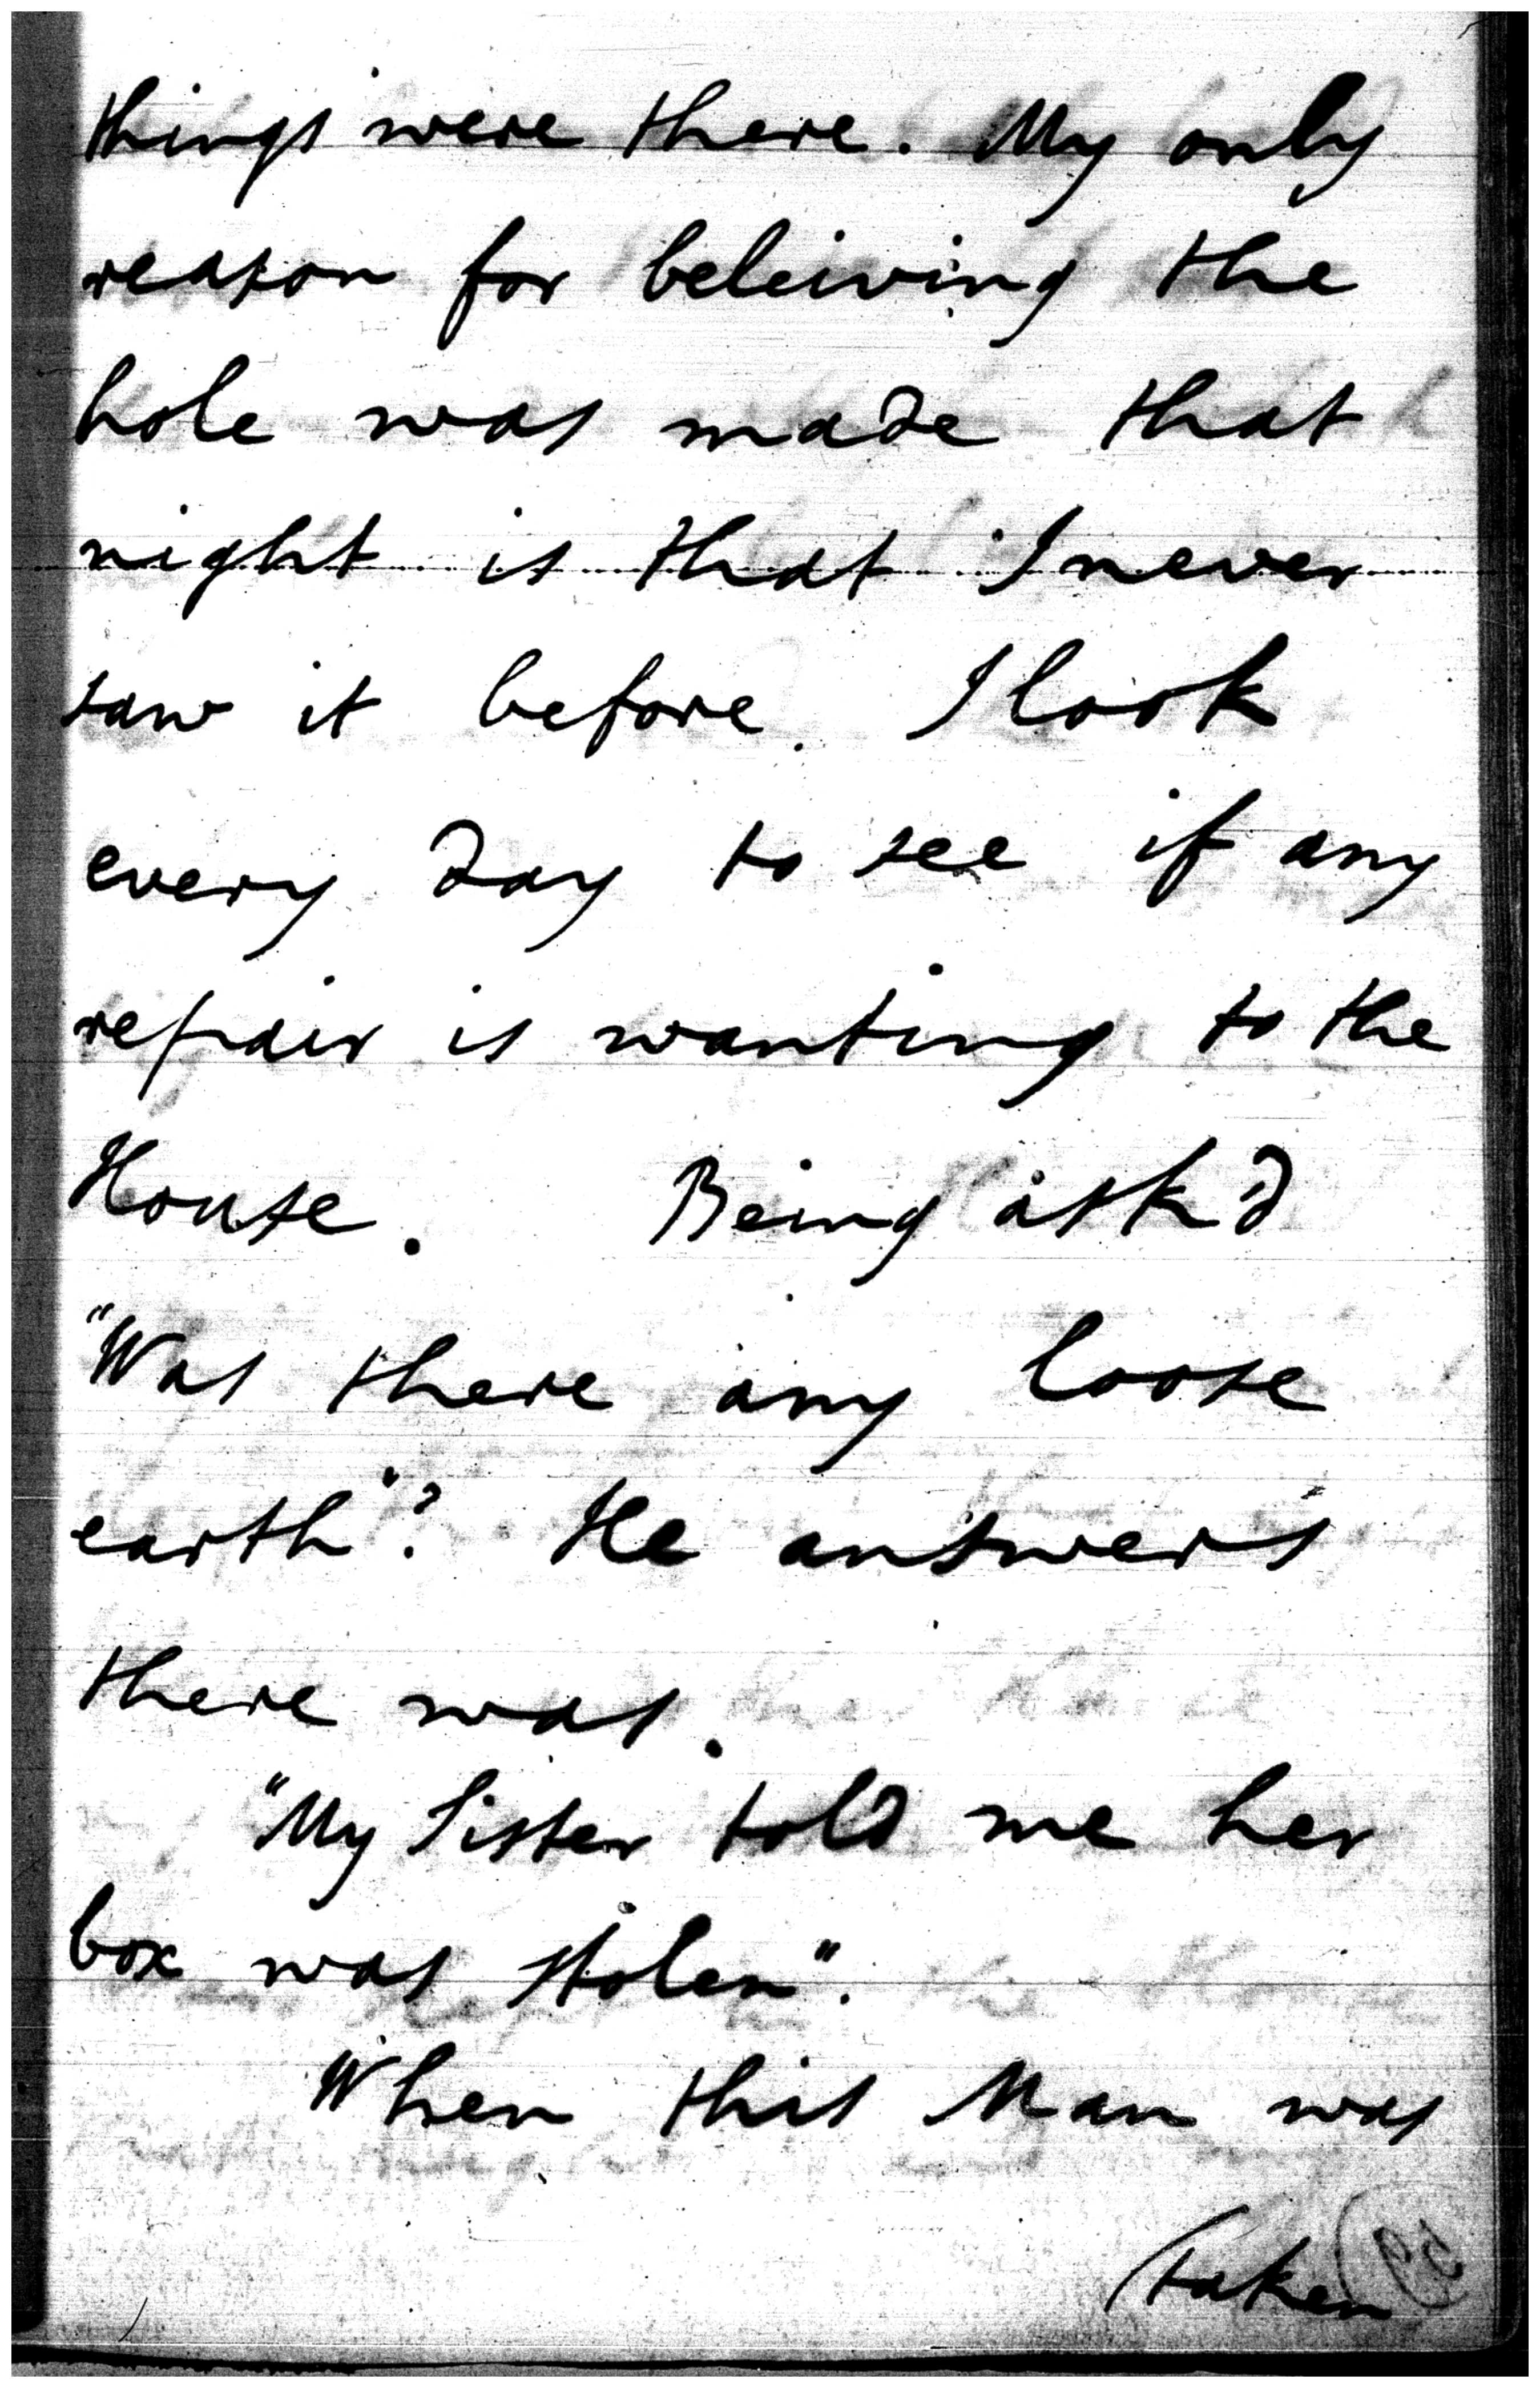 things were there. My only
reason for beleiving the
hole was made that
night is that I never
saw it before. I look
every day to see if any
repair is wanting to the
House. Being ask'd
"Was there any loose
earth"? He answers
there was.
"My Sister told me her
box was stolen".
When this Man was
(taken